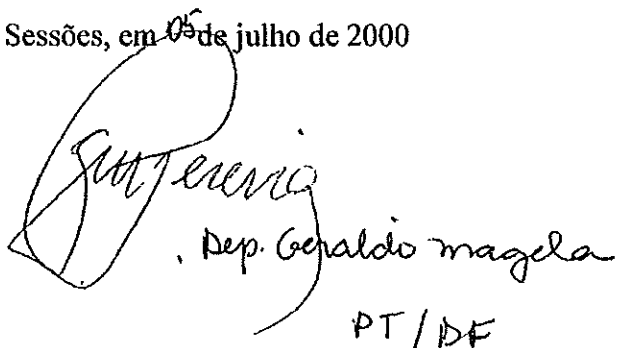 Sessões, em 05 de julho de 2000
Pereira
. Dep. Geraldo magela
PT/DF